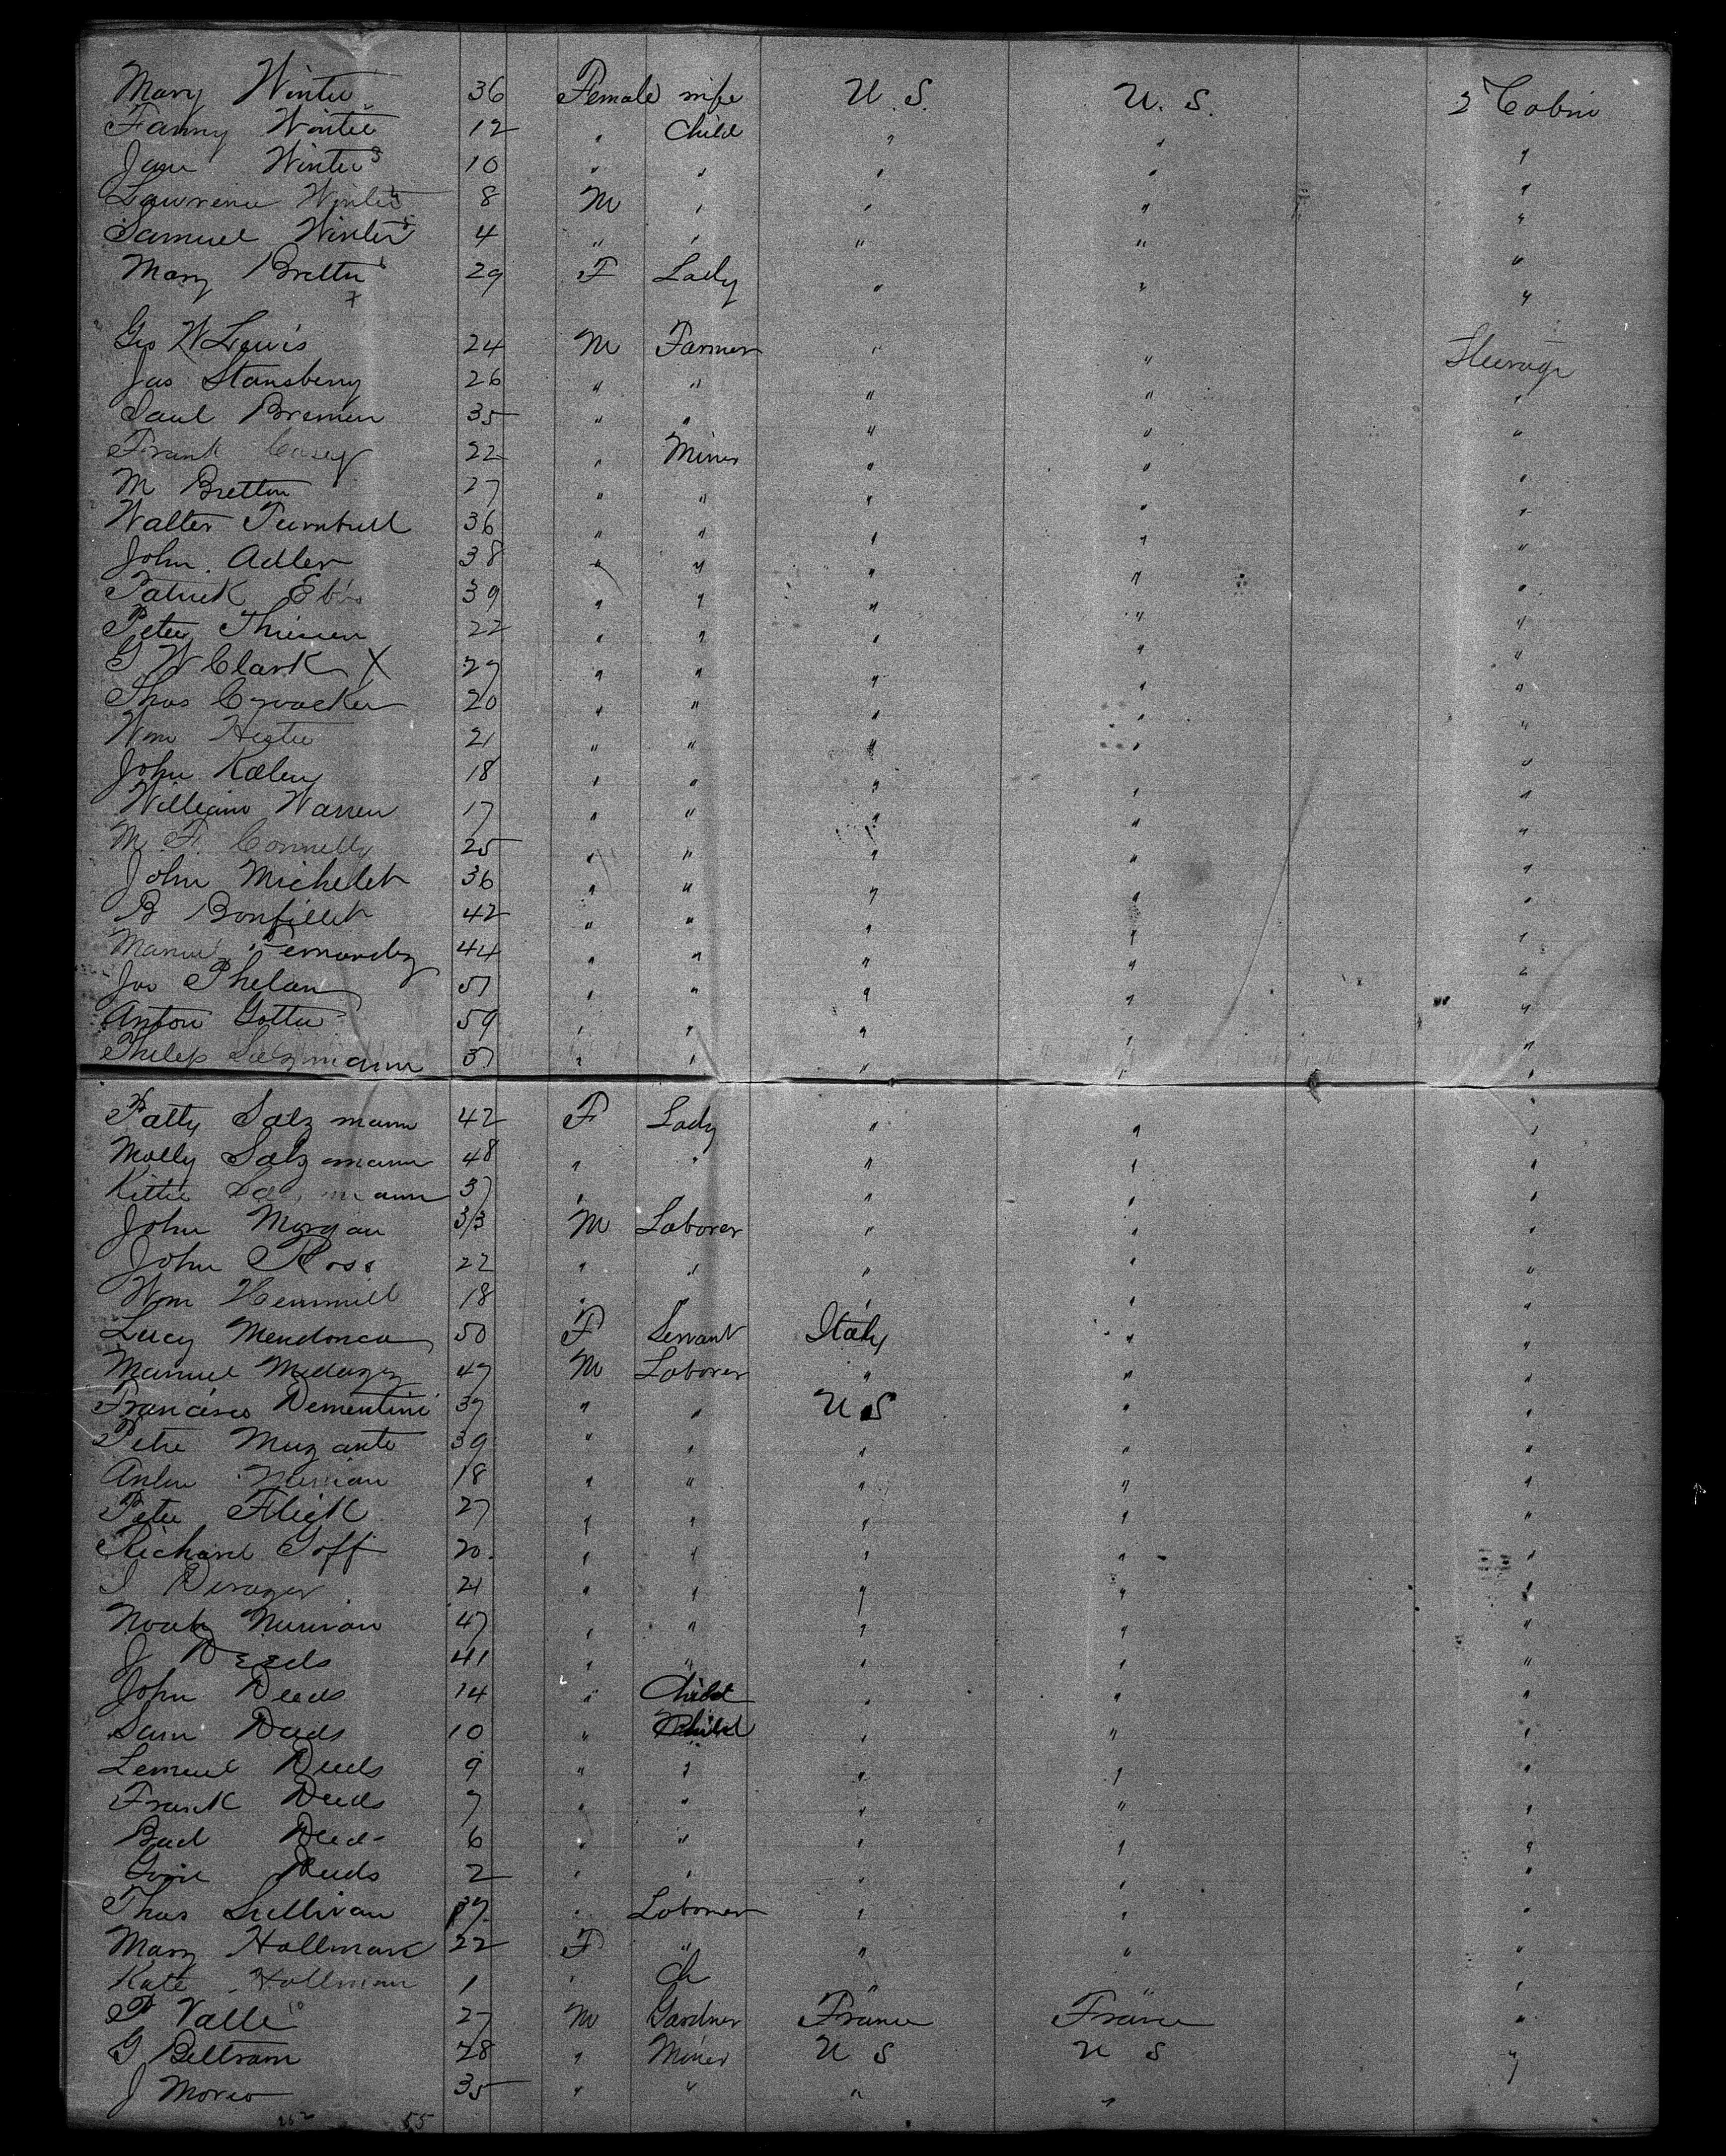 Mary Winter 36 Female wife U. S. U. S. 2 Cabin
Fanny Winter 12 " Child " " "
Jane Winters 10 " " " " "
Lawrence Winters 8 M " " " "
Samuel Winters 4 " " " " "
Mary Brettu 29 F Lady " " "
Geo W Lewis 24 M Farmer " " Steerage
Jas Stansberry 26 " " " " "
Saul Bremen 35 " " " " "
Frank Casey 22 " Miner " " "
M Bretton 27 " " " " "
Walter Turnbull 36 " " " " "
John Adler 38 " " " " "
Patrick 39 " " " " "
Peter Thiesen 22 " " " " "
G W Clark X 27 " " " " "
Thos Crocker 20 " " " " "
Wm Hester 21 " " " " "
John Kaleny 18 " " " " "
William Warren 17 " " " " "
M. F. Connelly 25 " " " " "
John Michelet 36 " " " " "
B Bonfillet 42 " " " " "
Manuel Fernandez 44 " " " " "
Jos Phelan 51 " " " " "
Anton Gotter 59 " " " " "
Philep Salzmann 37 " " " " "
Patty Salzmann 42 F Lady " " "
Molly Salzmann 48 " " " " "
Kittie Salzmann 37 " " " " "
John Morgan 33 M Laborer " " "
John Ross 22 " " " " "
Wm Hemmill 18 " " " " "
Lucy Mendonca 50 F Servant Italy " "
Manuel 47 M Laborer " " "
Francisco Dementini 37 " " U S " "
Petre Muzante 39 " " " " "
Anton 18 " " " " "
Peter Flick 27 " " " " "
Richard Goff 20 " " " " "
21 " " " " "
Noah 47 " " " " "
J Deeds 41 " " " " "
John Deeds 14 " Child " " "
Sam Deeds 10 " Child " " "
Lemuel Deeds 9 " " " " "
Frank Deeds 7 " " " " "
Bud Deeds 6 " " " " "
Deeds 2 " " " " "
Thos Sullivan 37 " Laborer " " "
Mary Hallman 22 F " " " "
Kate Hallman 1 " Ch " " "
P Valle 27 M Gardner France France "
G Beltram 28 " Miner U S U S "
J Moreo 35 " " " "
262 55